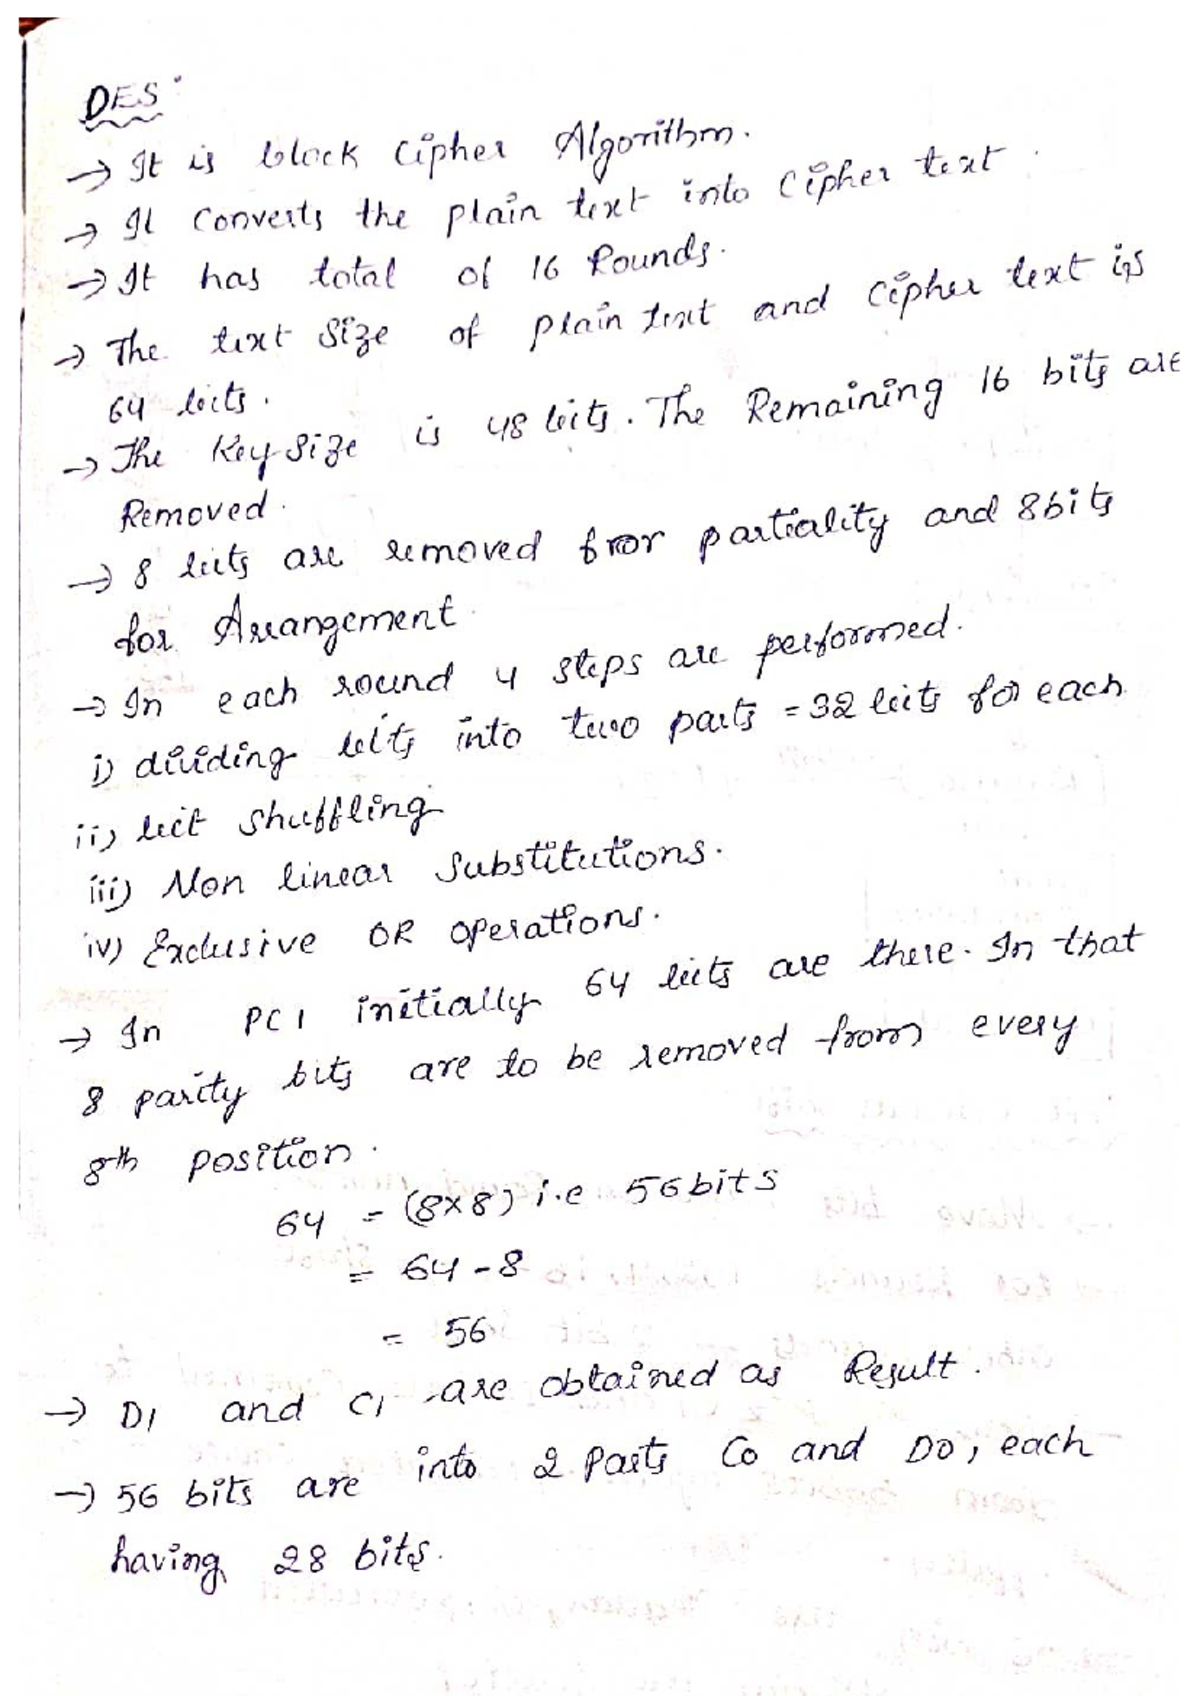 DES :
→ It is block Cipher Algorithm.
→ It Converts the plain text into Cipher text.
→ It has total of 16 Rounds.
→ The text Size of plain text and Cipher text is
64 bits.
→ The Key Size is 48 bits. The Remaining 16 bits are
Removed.
→ 8 bits are removed for partiality and 8 bits
for Arrangement.
→ In each round 4 steps are performed.
i) dividing bits into two parts = 32 bits for each
ii) bit shuffling
iii) Non linear Substitutions.
iv) Exclusive OR Operations.
→ In PC1 initially 64 bits are there. In that
8 parity bits are to be removed from every
8th position.
64 = (8×8) i.e 56 bits
= 64 - 8
= 56
→ D1 and C1 are obtained as Result.
→ 56 bits are into 2 Parts C0 and D0, each
having 28 bits.